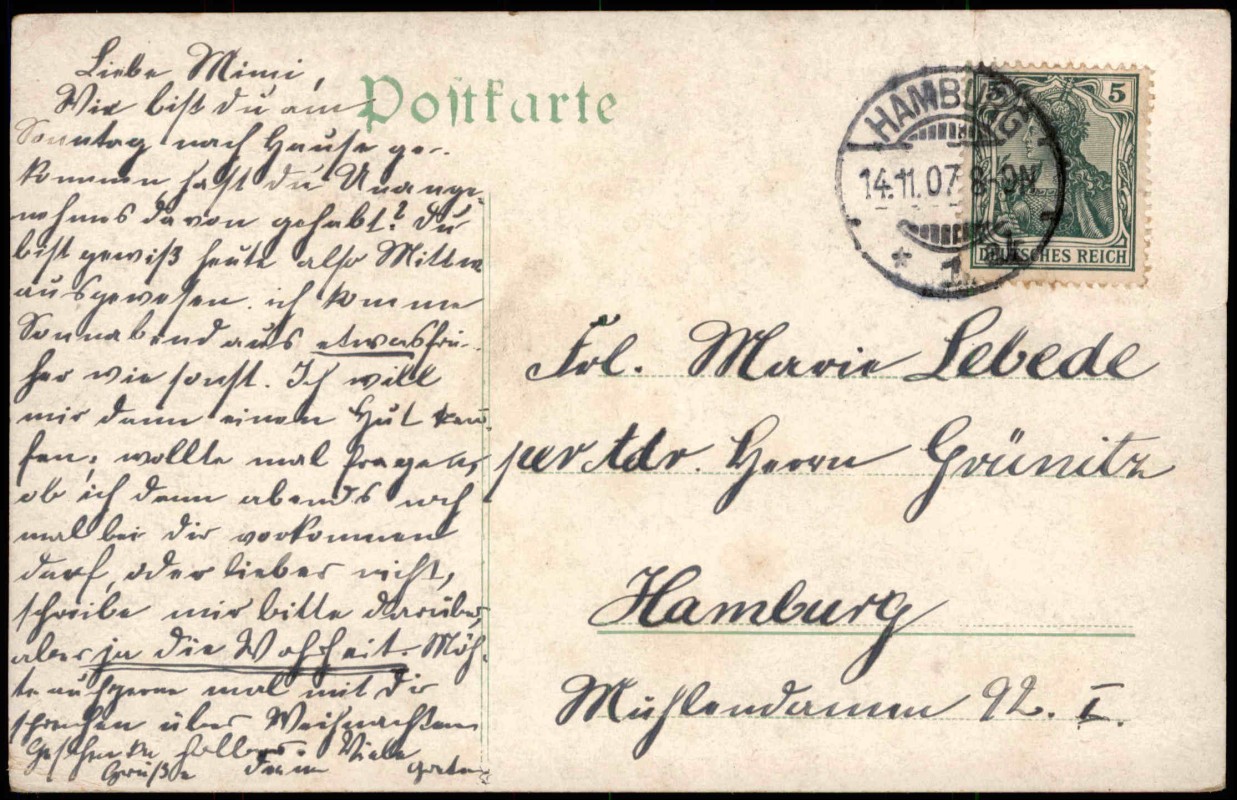 Postkarte
Liebe Mimi,
Wie bist du am
Sonntag nach Hause ge-
kommen, hast du Unange-
nehmes davon gehabt? Du
bist gewiß heute also Mittw
ausgewesen. ich komme
Sonnabend aus etwas frü-
her wie sonst. Ich will
mir dann einen Hut kau-
fen, wollte mal fragen,
ob ich dann abends noch
mal bei dir vorkommen
darf, oder lieber nicht,
schreibe mir bitte darüber,
aber ja die Wahrheit. Möch-
te auch gerne mal mit dir
sprechen über Weihnachten
Geschenke halber. Viele
Grüße Deine Greten
HAMBURG
14.11.07 8-9N
* 1
5
DEUTSCHES REICH
Frl. Marie Lebede
per Adr. Herrn Grünitz
Hamburg
Mühlendamm 92. I.